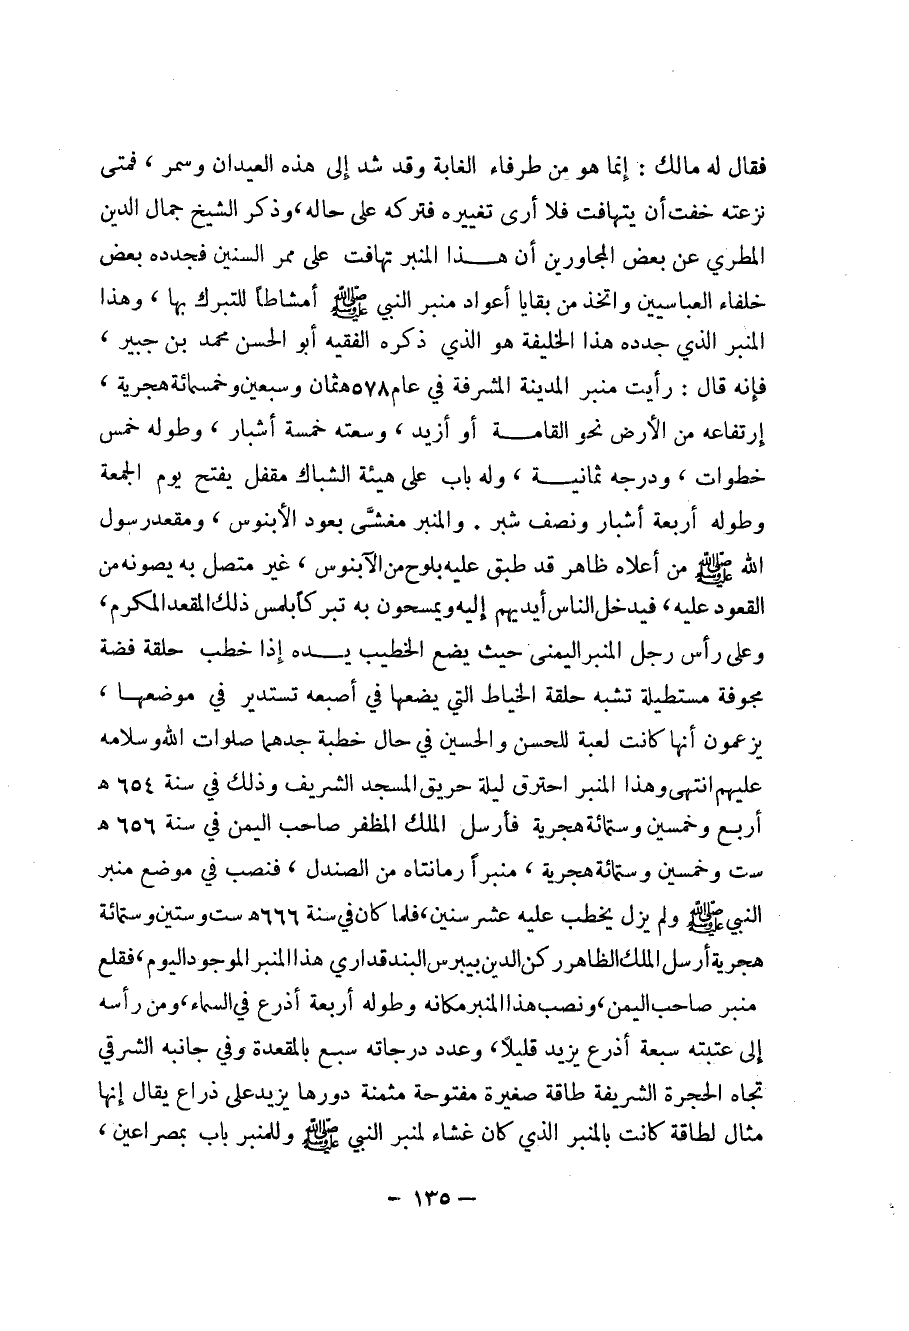 فقال له مالك : إنما هو من طرفاء الغابة وقد شد إلى هذه العيدان وسمر ، فمتى
نزعته خفت أن يتهافت فلا أرى تغييره فتركه على حاله ، وذكر الشيخ جمال الدين
المطري عن بعض المجاورين أن هـــذا المنبر تهافت على ممر السنين فجدده بعض
خلفاء العباسيين واتخذ من بقايا أعواد منبر النبي ﷺ أمشاطاً للتبرك بها ، وهذا
المنبر الذي جدده هذا الخليفة هو الذي ذكره الفقيه أبو الحسن محمد بن جبير ،
فإنه قال : رأيت منبر المدينة المشرفة في عام ٥٧٨هثمان وسبعين وخمسمائة هجرية ،
إرتفاعه من الأرض نحو القامـــة أو أزيد ، وسعته خمسة أشبار ، وطوله خمس
خطوات ، ودرجه ثمانيـــة ، وله باب على هيئة الشباك مقفل يفتح يوم الجمعة
وطوله أربعة أشبار ونصف شبر . والمنبر مغشَّى بعود الأبنوس ، ومقعد رسول
الله ﷺ من أعلاه ظاهر قد طبق عليه بلوح من الآبنوس ، غير متصل به يصونه من
القعود عليه ، فيدخل الناس أيديهم إليه ويمسحون به تبركاً بلمس ذلك المقعد المكرم ،
وعلى رأس رجل المنبر اليمنى حيث يضع الخطيب يـــده إذا خطب حلقة فضة
مجوفة مستطيلة تشبه حلقة الخياط التي يضعها في أصبعه تستدير في موضعهـا ،
يزعمون أنها كانت لعبة للحسن والحسين في حال خطبة جدهما صلوات الله وسلامه
عليهم انتهى وهذا المنبر احترق ليلة حريق المسجد الشريف وذلك في سنة ٦٥٤ ه
أربع وخمسين وستمائة هجرية فأرسل الملك المظفر صاحب اليمن في سنة ٦٥٦ ه
ست وخمسين وستمائة هجرية ، منبراً رمانتاه من الصندل ، فنصب في موضع منبر
النبي ﷺ ولم يزل يخطب عليه عشر سنين ، فلما كان في سنة ٦٦٦ه ست وستين وستمائة
هجرية أرسل الملك الظاهر ركن الدين بيبرس البندقداري هذا المنبر الموجود اليوم ، فقلع
منبر صاحب اليمن ، ونصب هذا المنبر مكانه وطوله أربعة أذرع في السماء ، ومن رأسه
إلى عتبته سبعة أذرع يزيد قليلاً ، وعدد درجاته سبع بالمقعدة وفي جانبه الشرقي
تجاه الحجرة الشريفة طاقة صغيرة مفتوحة مثمنة دورها يزيد على ذراع يقال إنها
مثال لطاقة كانت بالمنبر الذي كان غشاء لمنبر النبي ﷺ وللمنبر باب بمصراعين ،
– ١٣٥ –